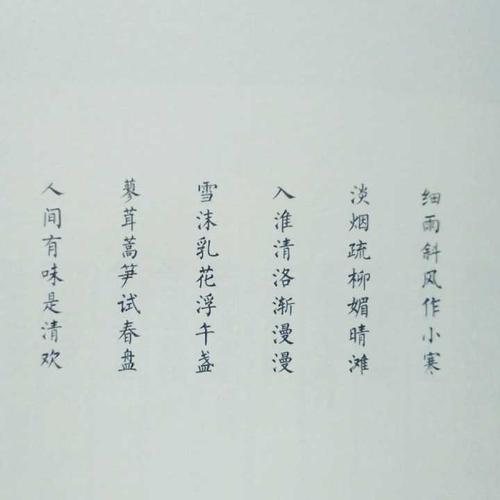 细雨斜风作小寒
淡烟疏柳媚晴滩
入淮清洛渐漫漫
雪沫乳花浮午盏
蓼茸蒿笋试春盘
人间有味是清欢